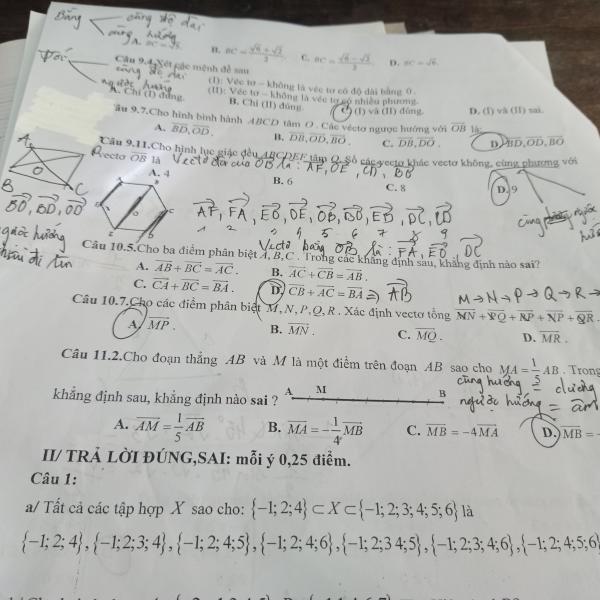 Bằng
cùng độ dài
cùng hướng
B. BC =
D. BC = √6.
Đối
cùng độ dài
ngược hướng
Câu 9.4. Xét các mệnh đề sau
(I): Véc tơ – không là véc tơ có độ dài bằng 0.
(II): Véc tơ – không là véc tơ có nhiều phương.
A. Chỉ (I) đúng. B. Chỉ (II) đúng. C. (I) và (II) đúng. D. (I) và (II) sai.
Câu 9.7. Cho hình bình hành ABCD tâm O. Các véctơ ngược hướng với OB là:
A. BD, OD. B. DB, OD, BO. C. DB, DO. D. BD, OD, BO
Câu 9.11. Cho hình lục giác đều ABCDEF tâm O. Số các vectơ khác vectơ không, cùng phương với
vectơ OB là
A. 4 B. 6 C. 8 D. 9
A
O
B C
BO, BD, OD
ngược hướng
AF, FA, EO, OE, OB, BO, EB, DC, CD
1 2 3 4 5 6 7 8 9
Vectơ bằng OB là: FA, EO, DC
Câu 10.5. Cho ba điểm phân biệt A, B, C. Trong các khẳng định sau, khẳng định nào sai?
A. AB + BC = AC. B. AC + CB = AB.
C. CA + BC = BA. D. CB + AC = BA => AB
M → N → P → Q → R →
Câu 10.7. Cho các điểm phân biệt M, N, P, Q, R. Xác định vectơ tổng MN + PQ + RP + NP + QR.
A. MP. B. MN. C. MQ. D. MR.
Câu 11.2. Cho đoạn thẳng AB và M là một điểm trên đoạn AB sao cho MA = 1/5 AB. Trong
cùng hướng = dương
ngược hướng = âm
khẳng định sau, khẳng định nào sai ? A M B
A. AM = 1/5 AB B. MA = -1/4 MB C. MB = -4MA D. MB = -
II/ TRẢ LỜI ĐÚNG,SAI: mỗi ý 0,25 điểm.
Câu 1:
a/ Tất cả các tập hợp X sao cho: {-1;2;4} ⊂ X ⊂ {-1;2;3;4;5;6} là
{-1; 2; 4}, {-1;2;3; 4}, {-1; 2; 4;5}, {-1; 2; 4;6}, {-1; 2;3 4;5}, {-1; 2;3; 4;6}, {-1; 2; 4;5;6}